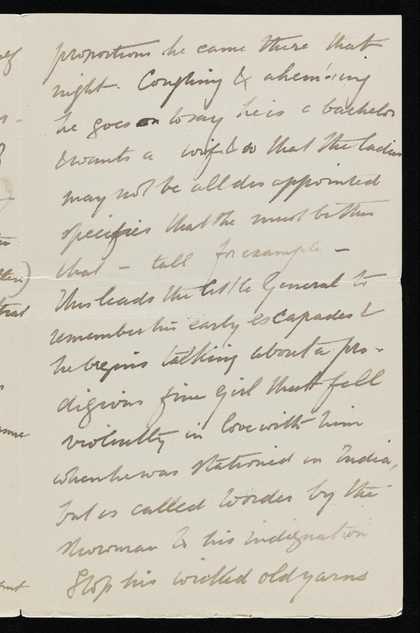 proportions he came there that
night. Coughing & ahem'ing
he goes on to say he is a bachelor
& wants a wife & so that the ladies
may not be all dis appointed
specifies that she must be this
that - tall for example -
This leads the little General to
remember his early escapades &
he begins talking about a pro-
digious fine girl that fell
violently in love with him
when he was stationed in India,
but is called to order by the
showman & his indignation
Stop his wicked old yarns